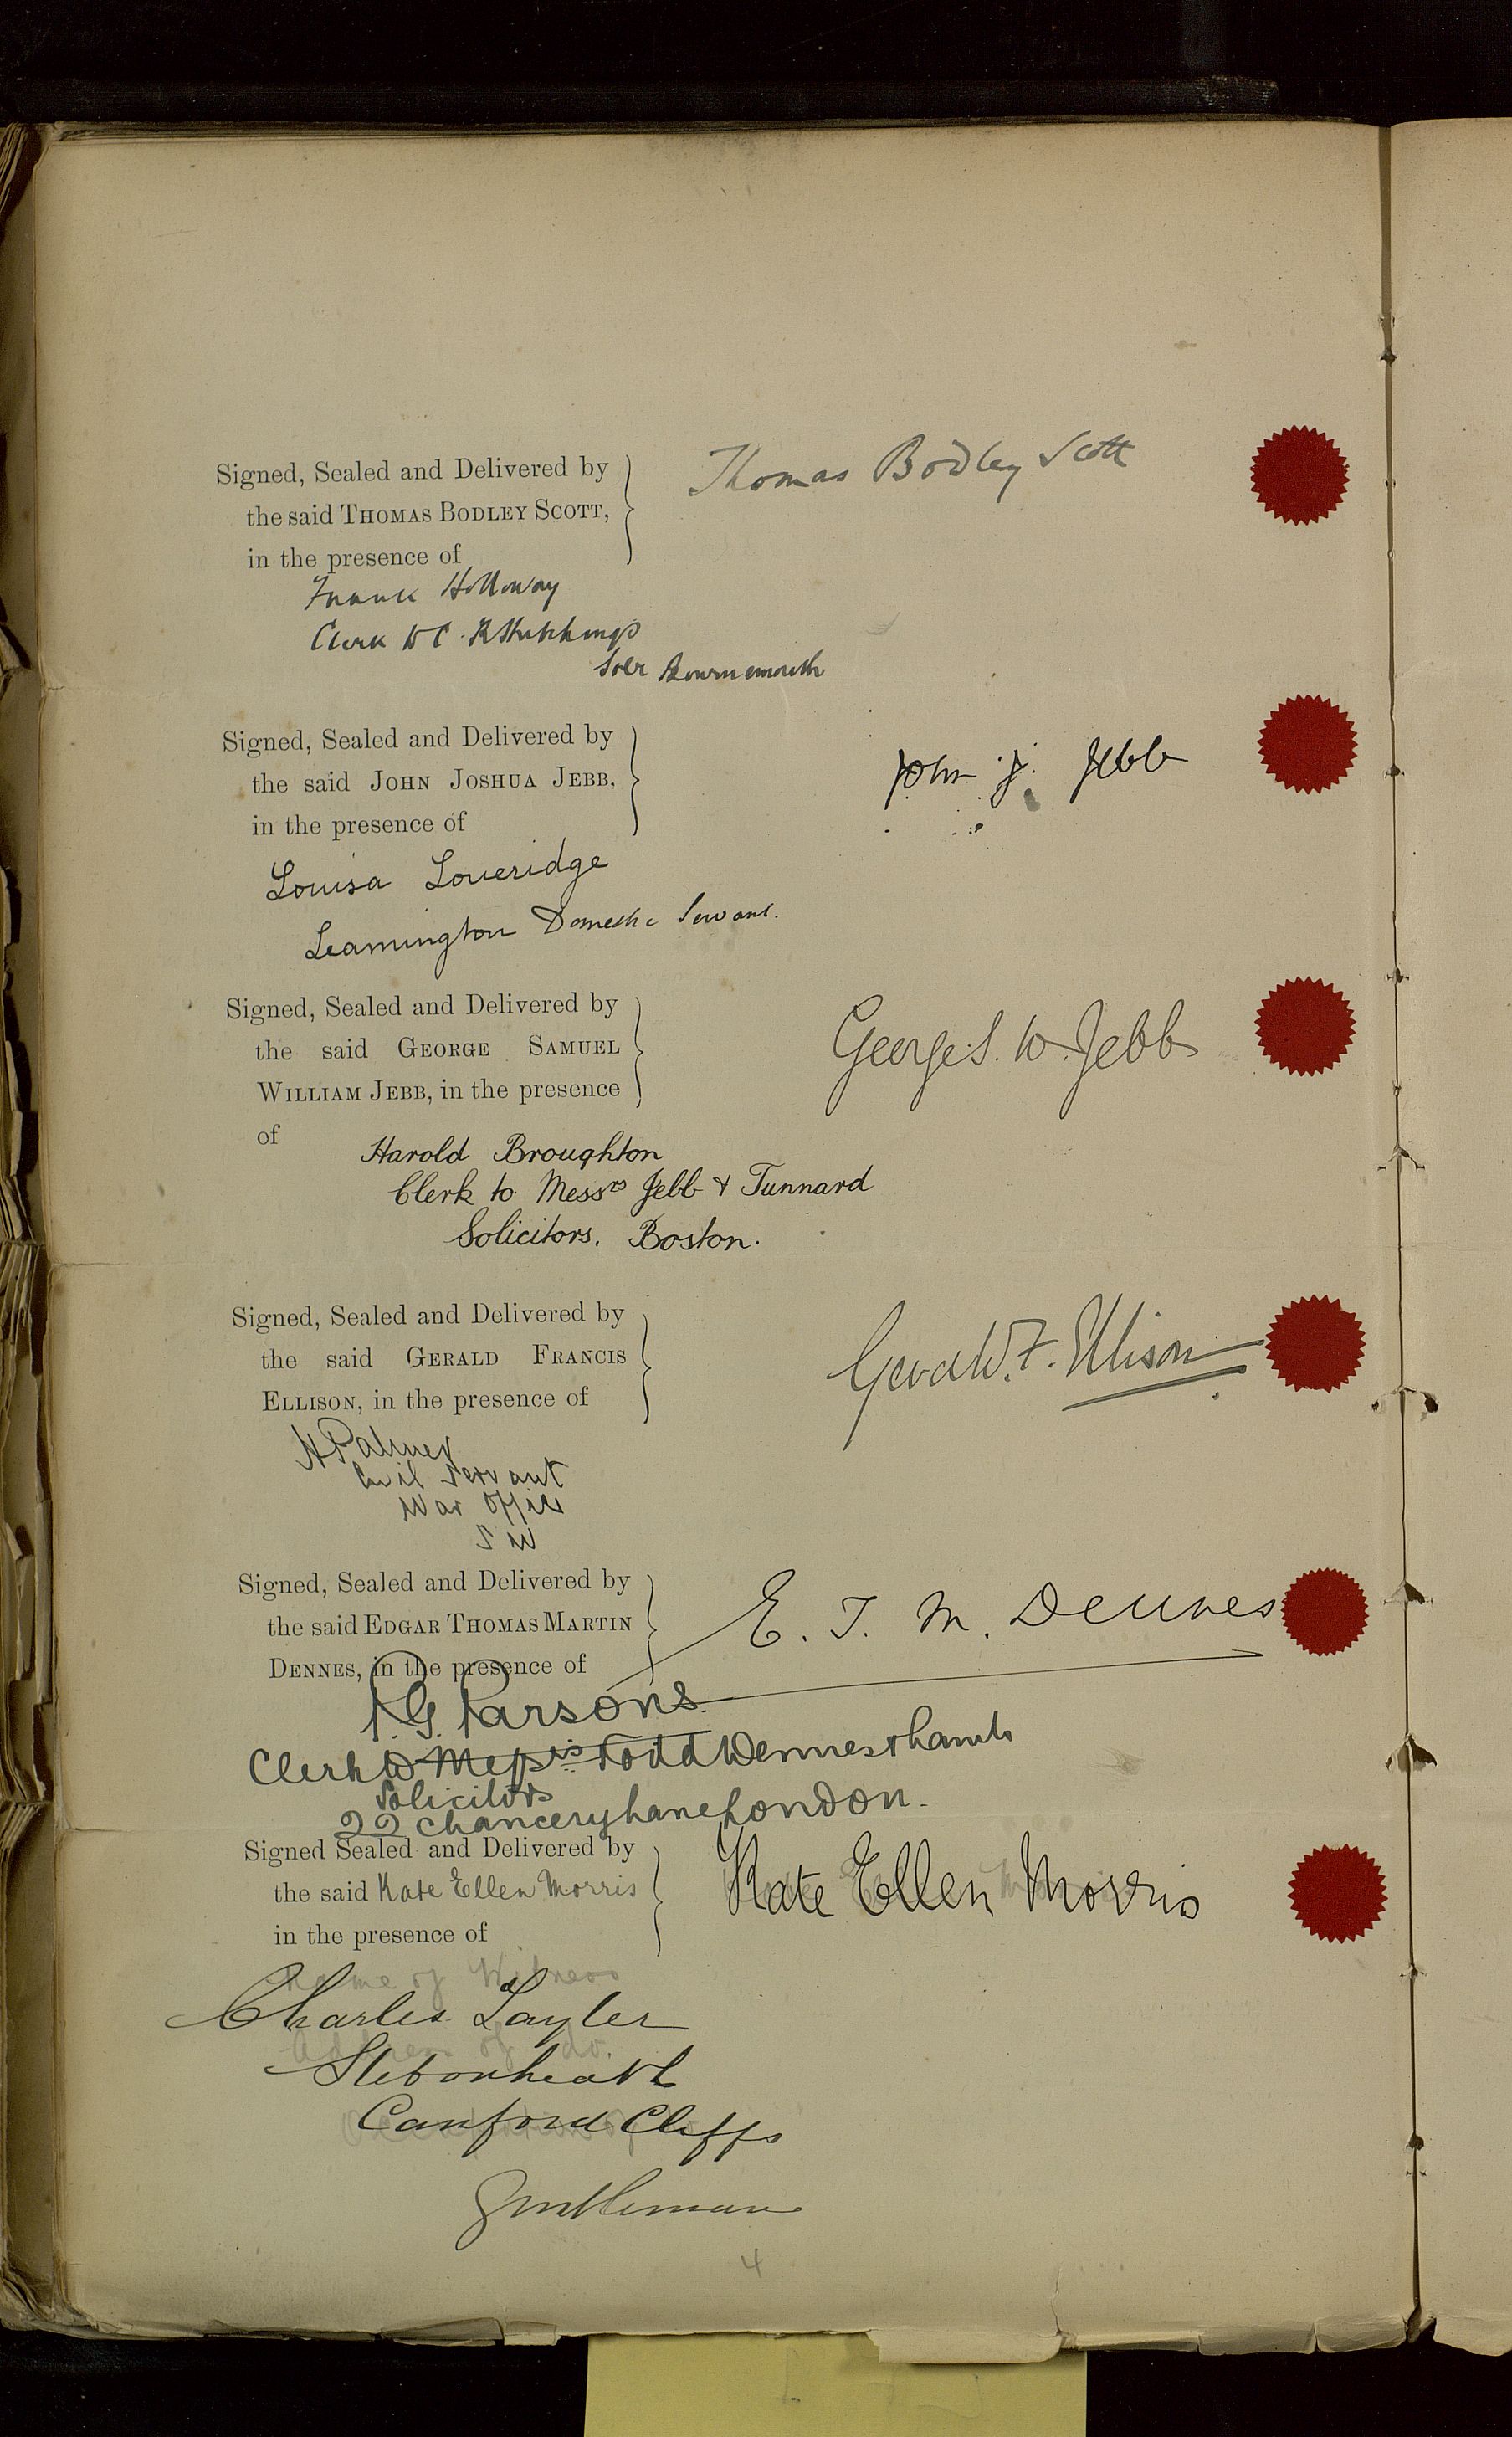 Signed, Sealed and Delivered by
the said THOMAS BODLEY SCOTT,
in the presence of
Thomas Bodley Scott
Frank Holloway
Clerk to C.
Solr Bournemouth
Signed, Sealed and Delivered by
the said JOHN JOSHUA JEBB,
in the presence of
John J. Jebb
Louisa Loveridge
Leamington Domestic Servant.
Signed, Sealed and Delivered by
the said GEORGE SAMUEL
WILLIAM JEBB, in the presence
of
George S. W. Jebb
Harold Broughton
Clerk to Messrs Jebb & Tunnard
Solicitors, Boston.
Signed, Sealed and Delivered by
the said GERALD FRANCIS
ELLISON, in the presence of
Gerald F. Ellison
H Palmer
Civil Servant
War Office
S W
Signed, Sealed and Delivered by
the said EDGAR THOMAS MARTIN
DENNES, in the presence of
E. T. M. Dennes
P. G. Parsons.
Clerk to Messrs Todd Dennes & Lamb
Solicitors
22 Chancery Lane London.
Signed Sealed and Delivered by
the said Kate Ellen Morris
in the presence of
Kate Ellen Morris
Name of Witness
Charles Layler
Address of do.
Stebonheath
Canford Cliffs
Gentleman
4